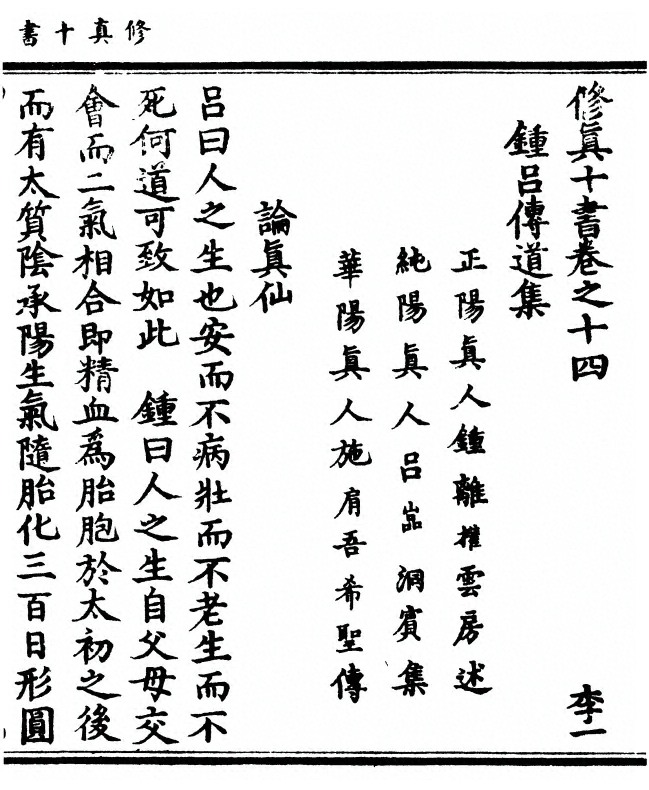 修真十書
修真十書卷之十四 李一
鍾呂傳道集
正陽真人鍾離權雲房述
純陽真人呂嵓洞賓集
華陽真人施肩吾希聖傳
論真仙
呂曰人之生也安而不病壯而不老生而不
死何道可致如此 鍾曰人之生自父母交
會而二氣相合即精血為胎胞於太初之後
而有太質陰承陽生氣隨胎化三百日形圓